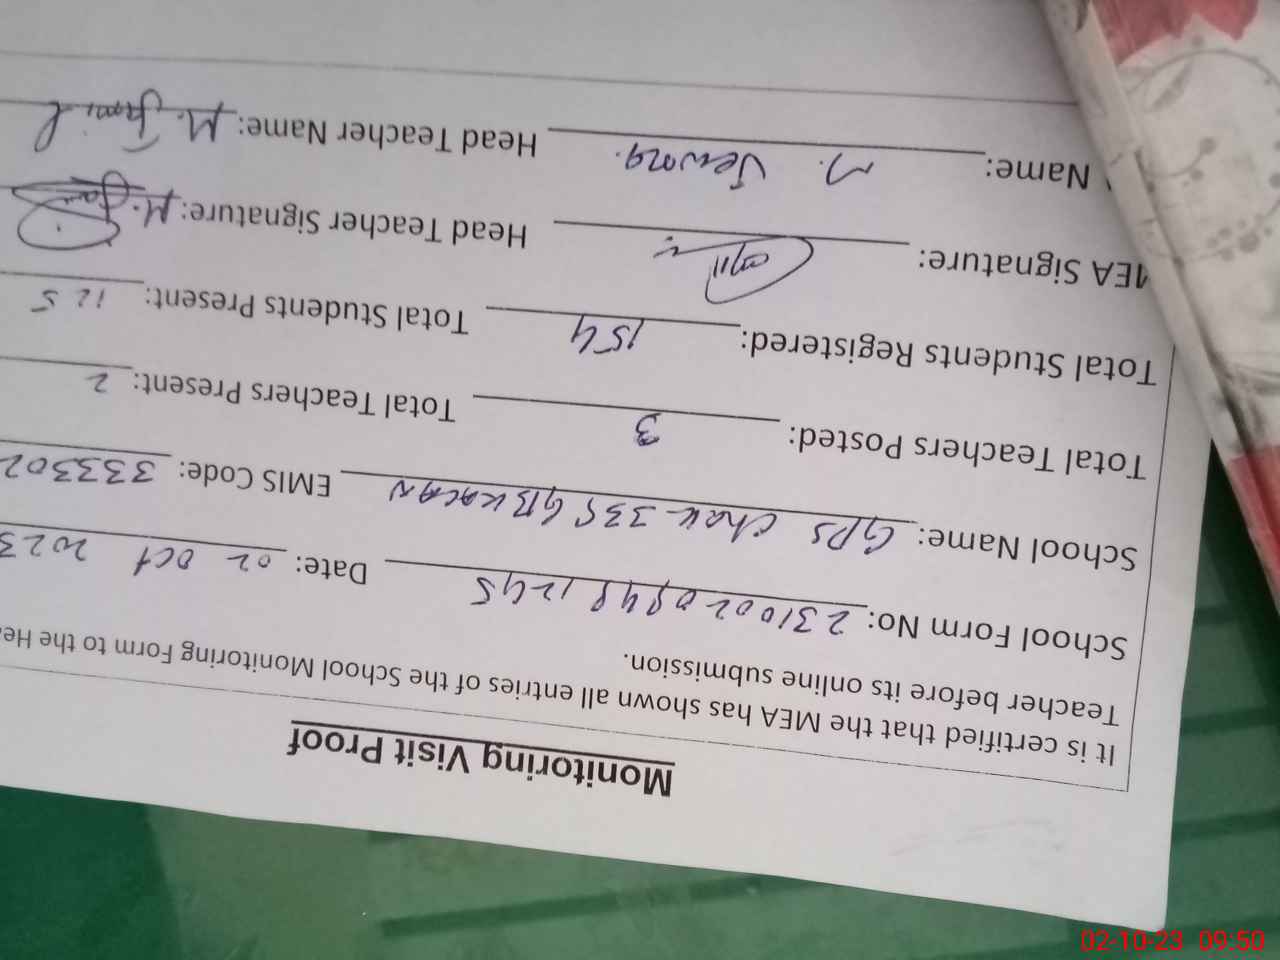 Monitoring Visit Proof
It is certified that the MEA has shown all entries of the School Monitoring Form to the Hea
Teacher before its online submission.
School Form No: Date: 02 Oct 2023
School Name: GPS Chak 335 GB EMIS Code: 333302
Total Teachers Posted: 3 Total Teachers Present: 2
Total Students Registered: 154 Total Students Present: 125
MEA Signature: Head Teacher Signature: M. Jamil
Name: M. Head Teacher Name: M. Jamil
02-10-23 09:50